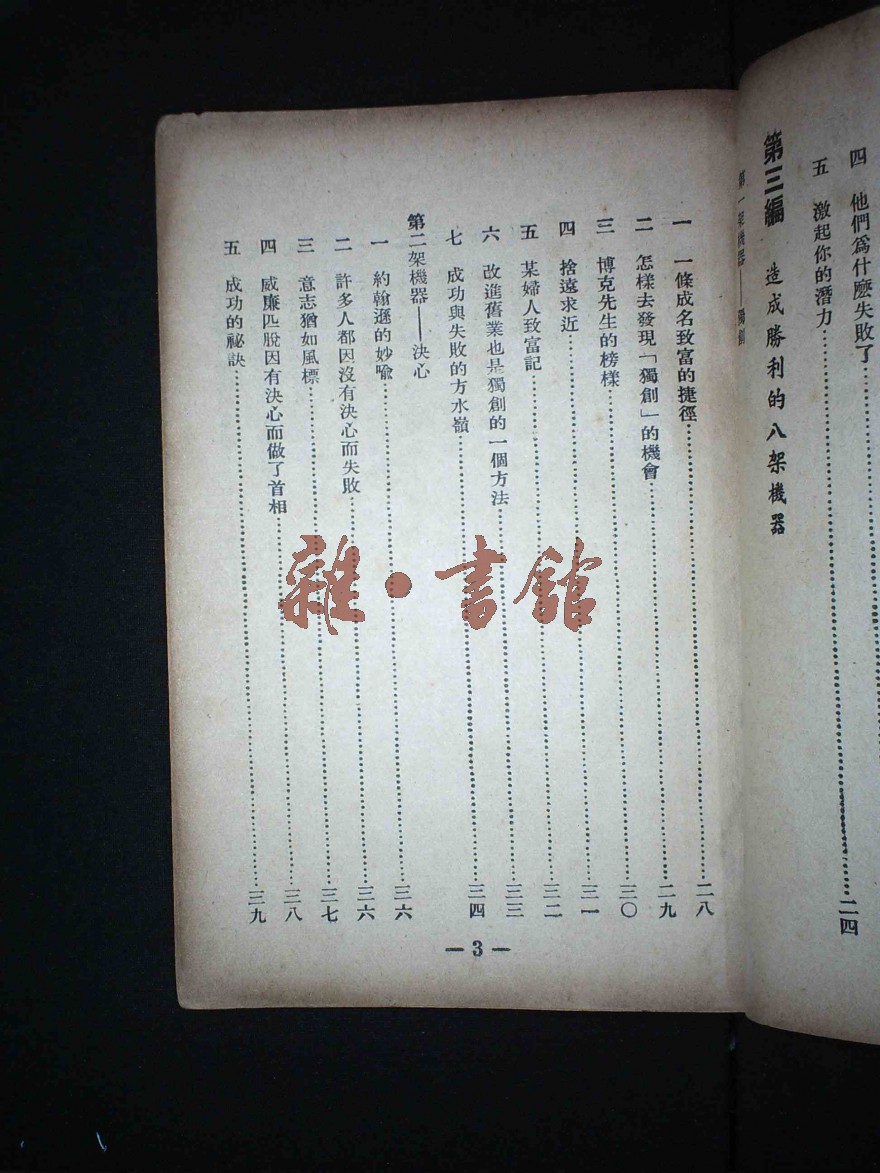 四 他們爲什麽失敗了
五 激起你的潛力……二四
第三編 造成勝利的八架機器
第一架機器——獨創
一 一條成名致富的捷徑……二八
二 怎樣去發現「獨創」的機會……二九
三 博克先生的榜樣……三〇
四 捨遠求近……三一
五 某婦人致富記……三二
六 改進舊業也是獨創的一個方法……三三
七 成功與失敗的方水嶺……三四
第二架機器——決心
一 約翰遜的妙喩……三六
二 許多人都因沒有決心而失敗……三六
三 意志猶如風標……三七
四 威廉匹脫因有決心而做了首相……三八
五 成功的祕訣……三九
— 3 —
雜·書館